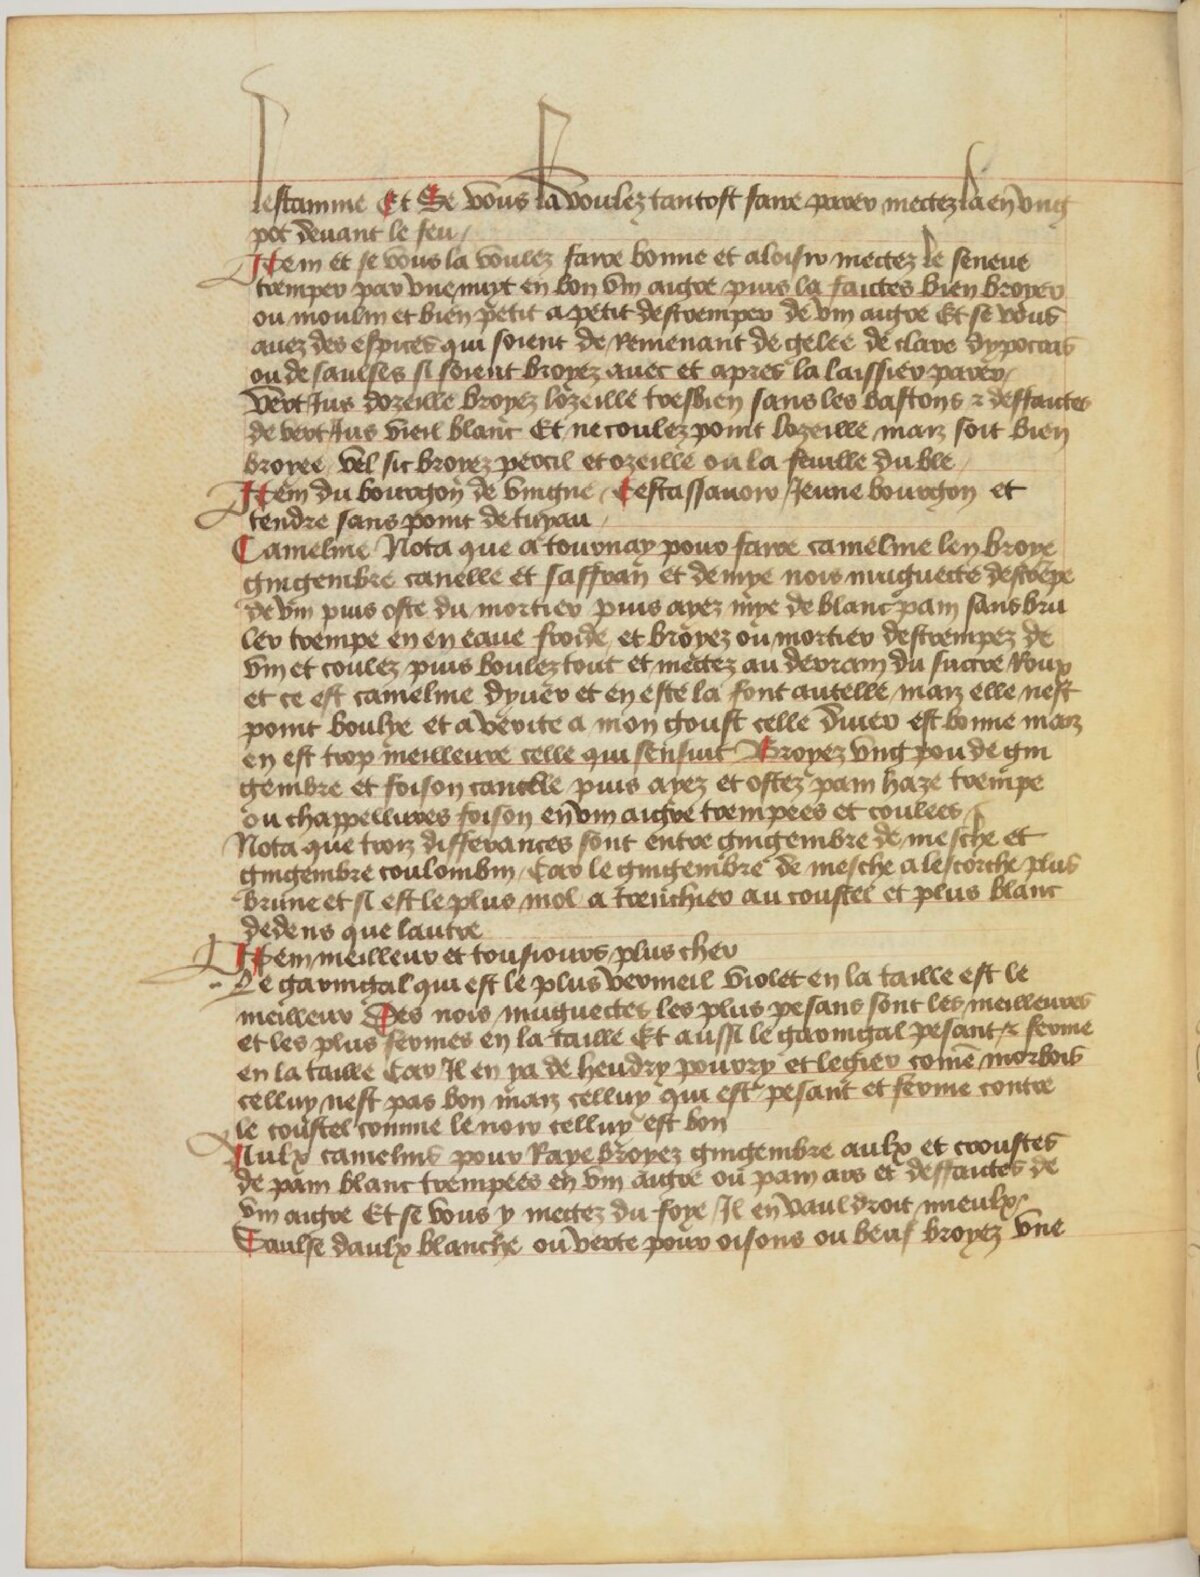 lestamine Et Se vous la voulez tantost faire parer mectez la en ung
pot devant le feu
Item et se vous la voulez faire bonne et a loisir mectez le seneve
tremper par une nuyt en bon vin aigre puis la faictes bien broyer
ou moulin et bien petit a petit destremper de vin aigre Et se vous
avez des espices qui soient de Remenant de gelee de clare dypocras
ou de saulses si soient broyez avec et apres la laissier parer
Vert Jus dozeille broyez lozeille tresbien sans les bastons ⁊ deffaictes
de vert Jus vieil blanc Et ne coulez point lozeille maiz soit bien
broyee vel sic broyez percil et ozeille ou la feuille du ble
Item du bourgon de vingne Cestassavoir Jeune bourgon et
tendre sans point de tuyau
Cameline Nota que a tournay pour faire cameline len broye
gingembre canelle et saffran et demye nois muguecte destrēpe
de vin puis oste du mortier puis ayez mye de blanc pain sans bru
ler trempe en en eaue froide et broyez ou mortier destrempez de
vin et coulez puis boulez tout et mectez au derrain du succre Roux
et ce est cameline dyver et en este la font autelle maiz elle nest
point boulye et a verite a mon goust celle diver est bonne maiz
en est trop meilleure celle qui sensuit Broyez ung pou de gin
gembre et foison canelle puis ayez et ostez pain haze trempe
ou chappellures foison en vin aigre trempees et coulees
Nota que troiz differances sont entre gingembre de mesche et
gingembre coulombin Car le gingembre de mesche a lescorche plus
brune et si est le plus mol a trenchier au coustel et plus blanc
dedens que lautre
Item meilleur et tousiours plus cher
Le garingal qui est le plus vermeil violet en la taille est le
meilleur Des nois muguectes les plus pesans sont les meilleures
et les plus fermes en la taille Et aussi le garingal pesant ⁊ ferme
en la taille Car Il en ya de heudry pourry et legier comē mort bois
celluy nest pas bon maiz celluy qui est pesant et ferme contre
le coustel comme le noir celluy est bon
Aulx camelins pour Raye broyez gingembre aulx et croustes
de pain blanc trempees en vin aigre ou pain ars et deffaictes de
vin aigre Et se vous y mectez du foye Il en vauldroit mieulx
Saulse daulx blanche ou verte pour oisons ou beuf broyez une